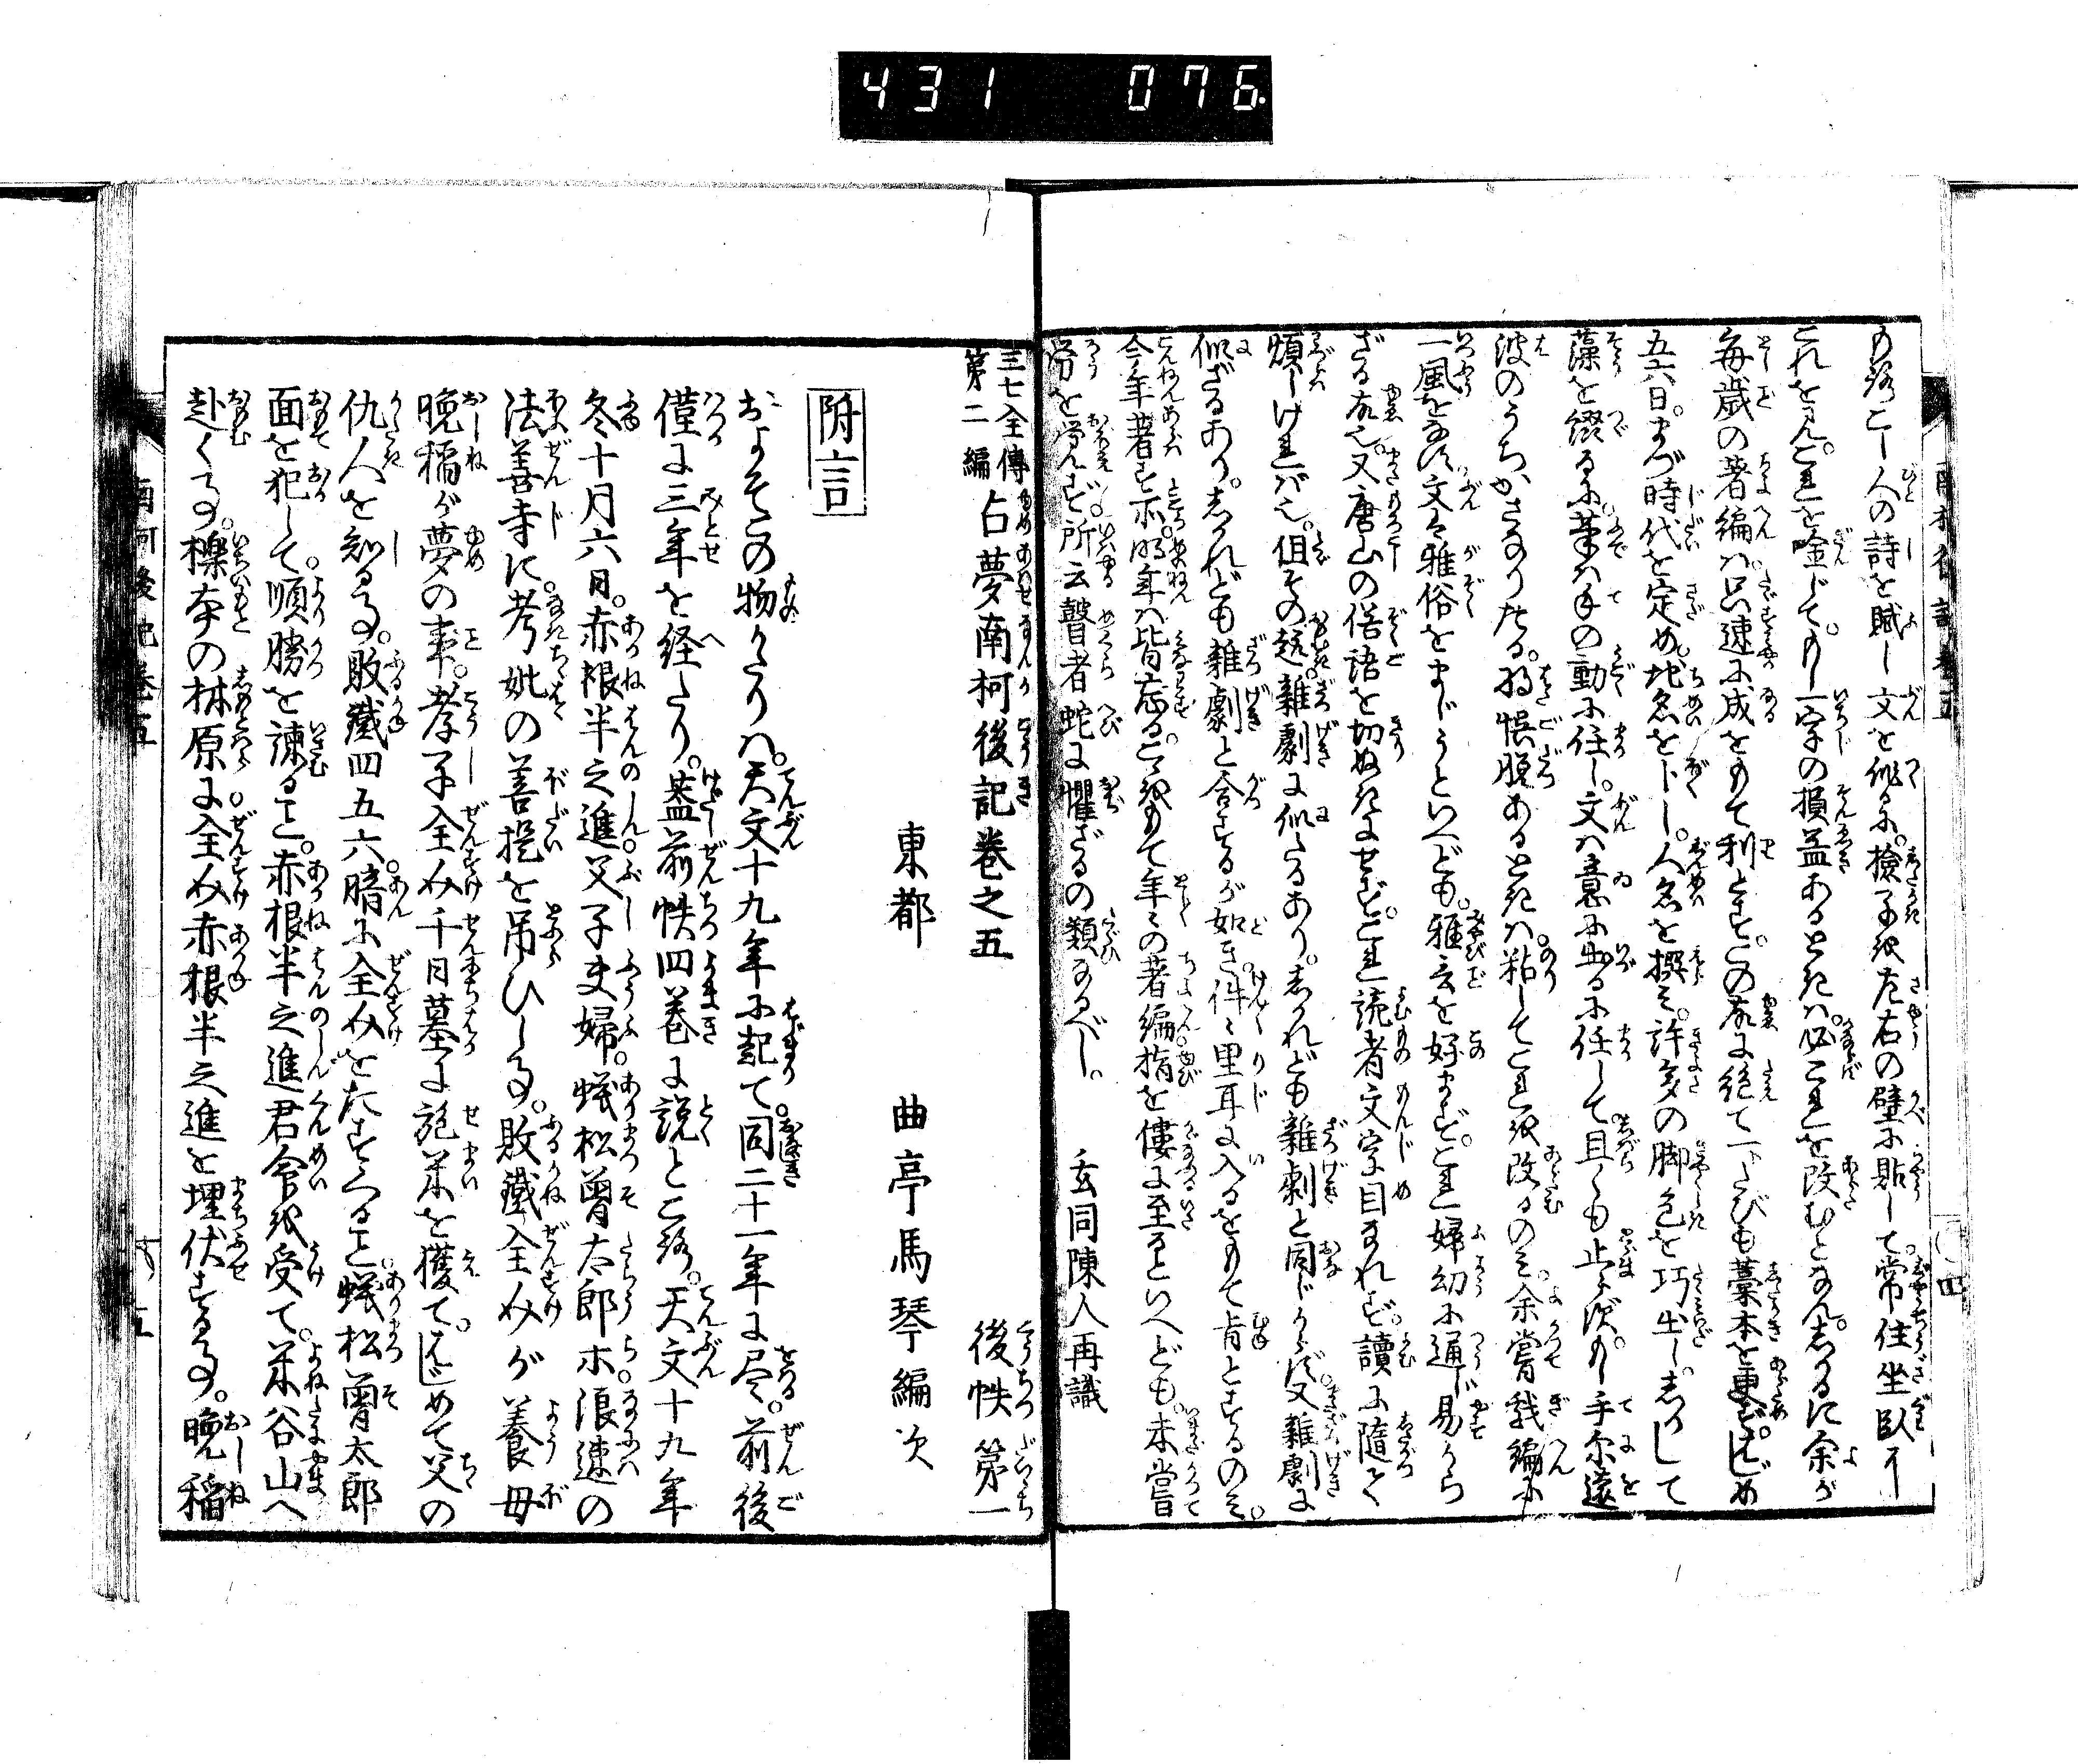 431 076
もろこし人の詩を賦し文を作るに。撿子を左右の壁に貼して。常住坐臥に
これを見。これを唫じて。もし一字の損益あるときは。必これを改むとなん。しかるに余が
毎歳の著編は。只速に成をもて利とす。この故に絶て一たびも藁本を更ず。はじめ
五六日。まづ時代を定め。地名を卜し。人名を撰み。許多の脚色を巧出し。しかして
藻を綴るに。筆は手の動に任し。文は意に出るに任して。且くも止らず。もし手尓遠
波のうち。かさなりたる。将悞脱あるときは。粘してこれを改るのみ。余嘗戯編に
一風をなす。文を雅俗をまじうといへども。雅言を好まず。これ婦幼に通じ易から
ざる故也。又唐山の俗語を切ぬきにせず。これ読者文字目なれず。讀に隨て
煩しければ也。但その趣雜劇に似たるあり。しかれども雜劇と同じからず。又雜劇に
似ざるあり。しかれども雜劇と合するが如き。件々里耳に入るをもて肯とするのみ。
今年著す所。明年は皆忘る。こゝをもて年々の著編。指を僂に至るといへども。未嘗
労を覚ず。所云瞽者蛇に懼ざるの類なるべし。
玄同陳人再識
三七全傳第二編 占夢南柯後記巻之五
後帙第一
東都 曲亭馬琴編次
附言
およそこの物かたりは。天文十九年に起て。同二十一年に尽。前後
僅に三年を経たり。葢前帙四巻に説ところ。天文十九年
冬十月六日。赤根半之進父子夫婦。蟻松曽太郎ホ浪速の
法善寺に。考妣の菩提を吊ひし事。敗鐵全介が養母
晩稲が夢の事。孝子全介千日墓に施米を獲て。はじめて父の
仇人を知る事。敗鐵四五六暗に全介をたすくること。蟻松曽太郎
面を犯して。順勝を諫ること。赤根半之進君命を受て。米谷山へ
赴く事。櫟本の林原に全介赤根半之進を埋伏する事。晩稲
南柯後記巻五